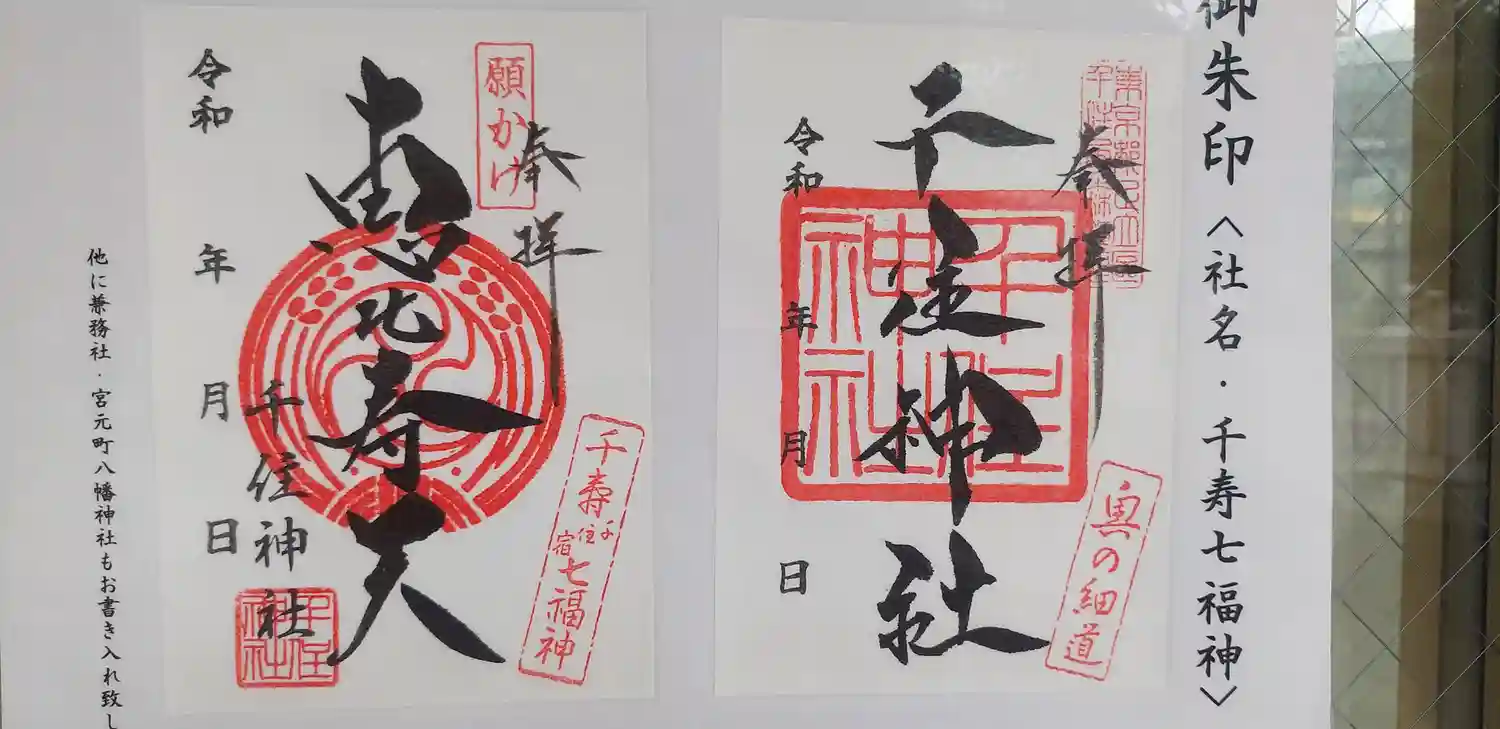 御朱印〈社名・千寿七福神〉
奉拝
千住神社
令和 年 月 日
千住神社
奥の細道
願かけ
奉拝
恵比寿天
千住神社
令和 年 月 日
千住神社
千寿七福神
千住宿
他に兼務社・宮元町八幡神社もお書き入れ致し